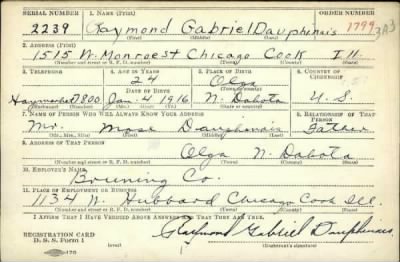 SERIAL NUMBER 1. NAME (Print) ORDER NUMBER
2239 Raymond Gabriel Dauphinais 1799
(First) (Middle) (Last)
2. ADDRESS (Print)
1515 W. Monroe St Chicago Cook Ill.
(Number and street or R. F. D. number) (Town) (County) (State)
3. TELEPHONE 4. AGE IN YEARS 5. PLACE OF BIRTH 6. COUNTRY OF CITIZENSHIP
24 Olga
DATE OF BIRTH
Haymarket 7800 Jan. 4 1916 N. Dakota U.S.
(Exchange) (No.) (Mo.) (Day) (Yr.) (State or country)
7. NAME OF PERSON WHO WILL ALWAYS KNOW YOUR ADDRESS 8. RELATIONSHIP OF THAT PERSON
Mr. Mose Dauphinais Father
(Mr., Mrs., Miss) (First) (Middle) (Last)
9. ADDRESS OF THAT PERSON
Olga N. Dakota
(Number and street or R. F. D. number) (Town) (County) (State)
10. EMPLOYER'S NAME
Bruning Co.
11. PLACE OF EMPLOYMENT OR BUSINESS
1134 W. Hubbard Chicago Cook Ill.
(Number and street or R. F. D. number) (Town) (County) (State)
I AFFIRM THAT I HAVE VERIFIED ABOVE ANSWERS AND THAT THEY ARE TRUE.
REGISTRATION CARD
D. S. S. Form 1 Raymond Gabriel Dauphinais
(Registrant's signature)